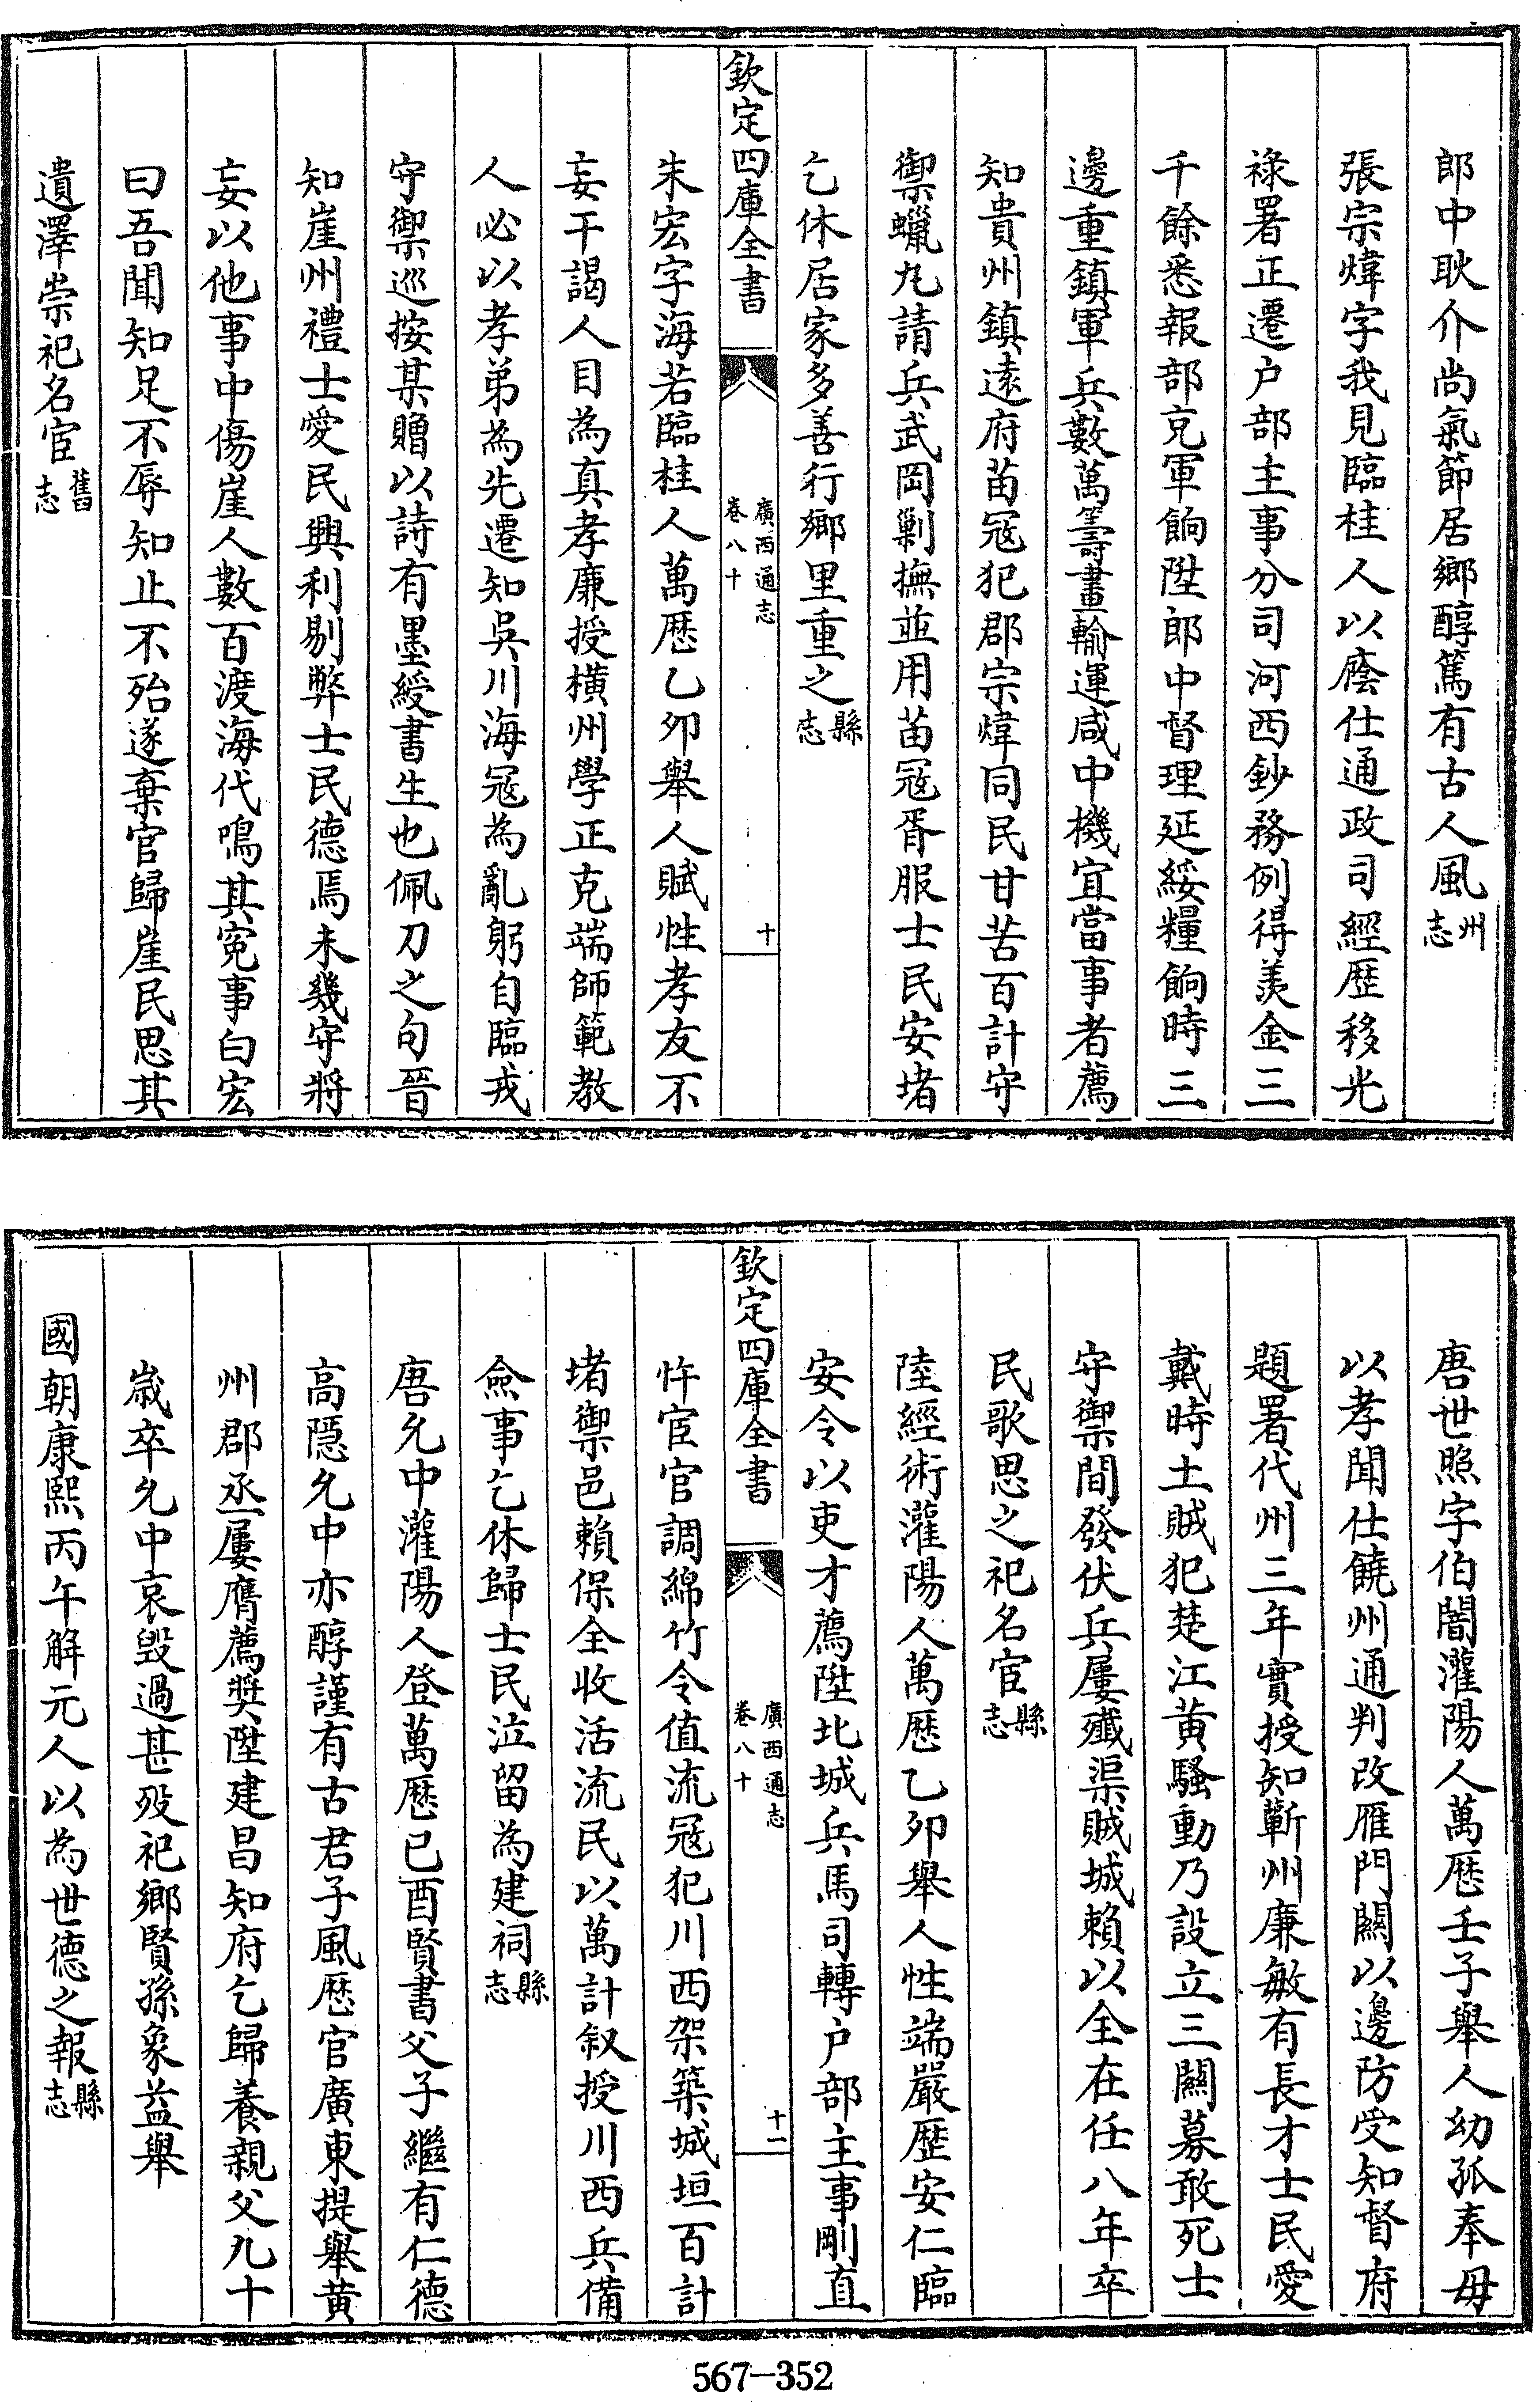 郎中耿介尚氣節居鄉醇篤有古人風州志
張宗煒字我見臨桂人以廕仕通政司經歴移光
祿署正遷户部主事分司河西鈔務例得羨金三
千餘悉報部克軍餉陞郎中督理延綏糧餉時三
邊重鎮軍兵數萬籌畫輸運咸中機宜當事者薦
知貴州鎮逺府苗冦犯郡宗煒同民甘苦百計守
禦蠟丸請兵武岡剿撫並用苗冦胥服士民安堵
乞休居家多善行鄉里重之縣志
欽定四庫全書
廣西通志
卷八十
十
朱宏字海若臨桂人萬歴乙夘舉人賦性孝友不
妄干謁人目為真孝廉授橫州學正克端師範教
人必以孝弟為先遷知吳川海冦為亂躬自臨戎
守禦巡按某贈以詩有墨綬書生也佩刀之句晉
知崖州禮士愛民興利剔弊士民德焉未幾守將
妄以他事中傷崖人數百渡海代鳴其寃事白宏
曰吾聞知足不辱知止不殆遂棄官歸崖民思其
遺澤崇祀名宦舊志
唐世照字伯闇灌陽人萬歴壬子舉人幼孤奉母
以孝聞仕饒州通判改雁門關以邊防受知督府
題署代州三年實授知蘄州廉敏有長才士民愛
戴時土賊犯楚江黄騷動乃設立三關募敢死士
守禦間發伏兵屢殲渠賊城賴以全在任八年卒
民歌思之祀名宦縣志
陸經術灌陽人萬歴乙夘舉人性端嚴歴安仁臨
安令以吏才薦陞北城兵馬司轉户部主事剛直
欽定四庫全書
廣西通志
卷八十
十一
忤宦官調綿竹令值流冦犯川西架築城垣百計
堵禦邑賴保全收活流民以萬計叙授川西兵備
僉事乞休歸士民泣留為建祠縣志
唐允中灌陽人登萬歴已酉賢書父子繼有仁德
高隱允中亦醇謹有古君子風歴官廣東提舉黄
州郡丞屢膺薦奬陞建昌知府乞歸養親父九十
嵗卒允中哀毁過甚殁祀鄉賢孫象益舉
國朝康熙丙午解元人以為世德之報縣志
567-352